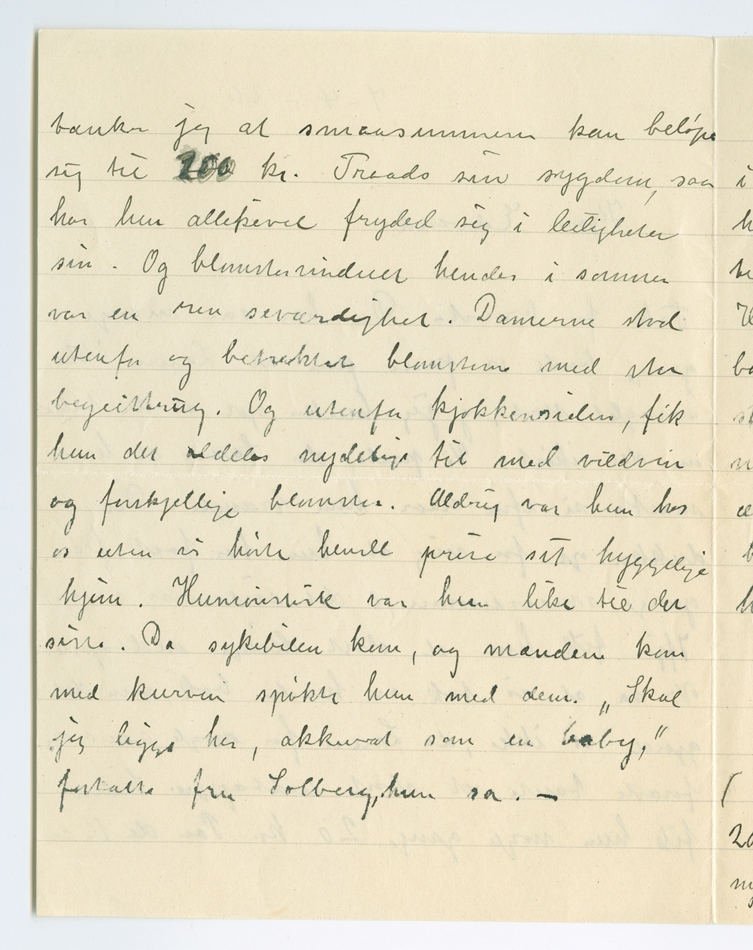 tænker jeg at smaasummerne kan beløpe
sig til 200 kr. Traads sin sygdom, saa
har hun allikevel frydet sig i leiligheten
sin. Og blomstervinduet hendes i sommer
var en ren seværdighet. Damerne stod
utenfor og betraktet blomsterne med stor
begeistring. Og utenfor kjøkkensiden, fik
hun det aldeles nydelige til med vildvin
og forskjellige blomster. Aldrig var hun hos
os uten vi hørte hende prise sit hyggelige
hjem. Humoristisk var hun like til det
siste. Da sykebilen kom, og mændene kom
med kurven spøkte hun med dem. „Skal
jeg ligge her, akkurat som en baby,"
fortalte fru Solberg, hun sa. —